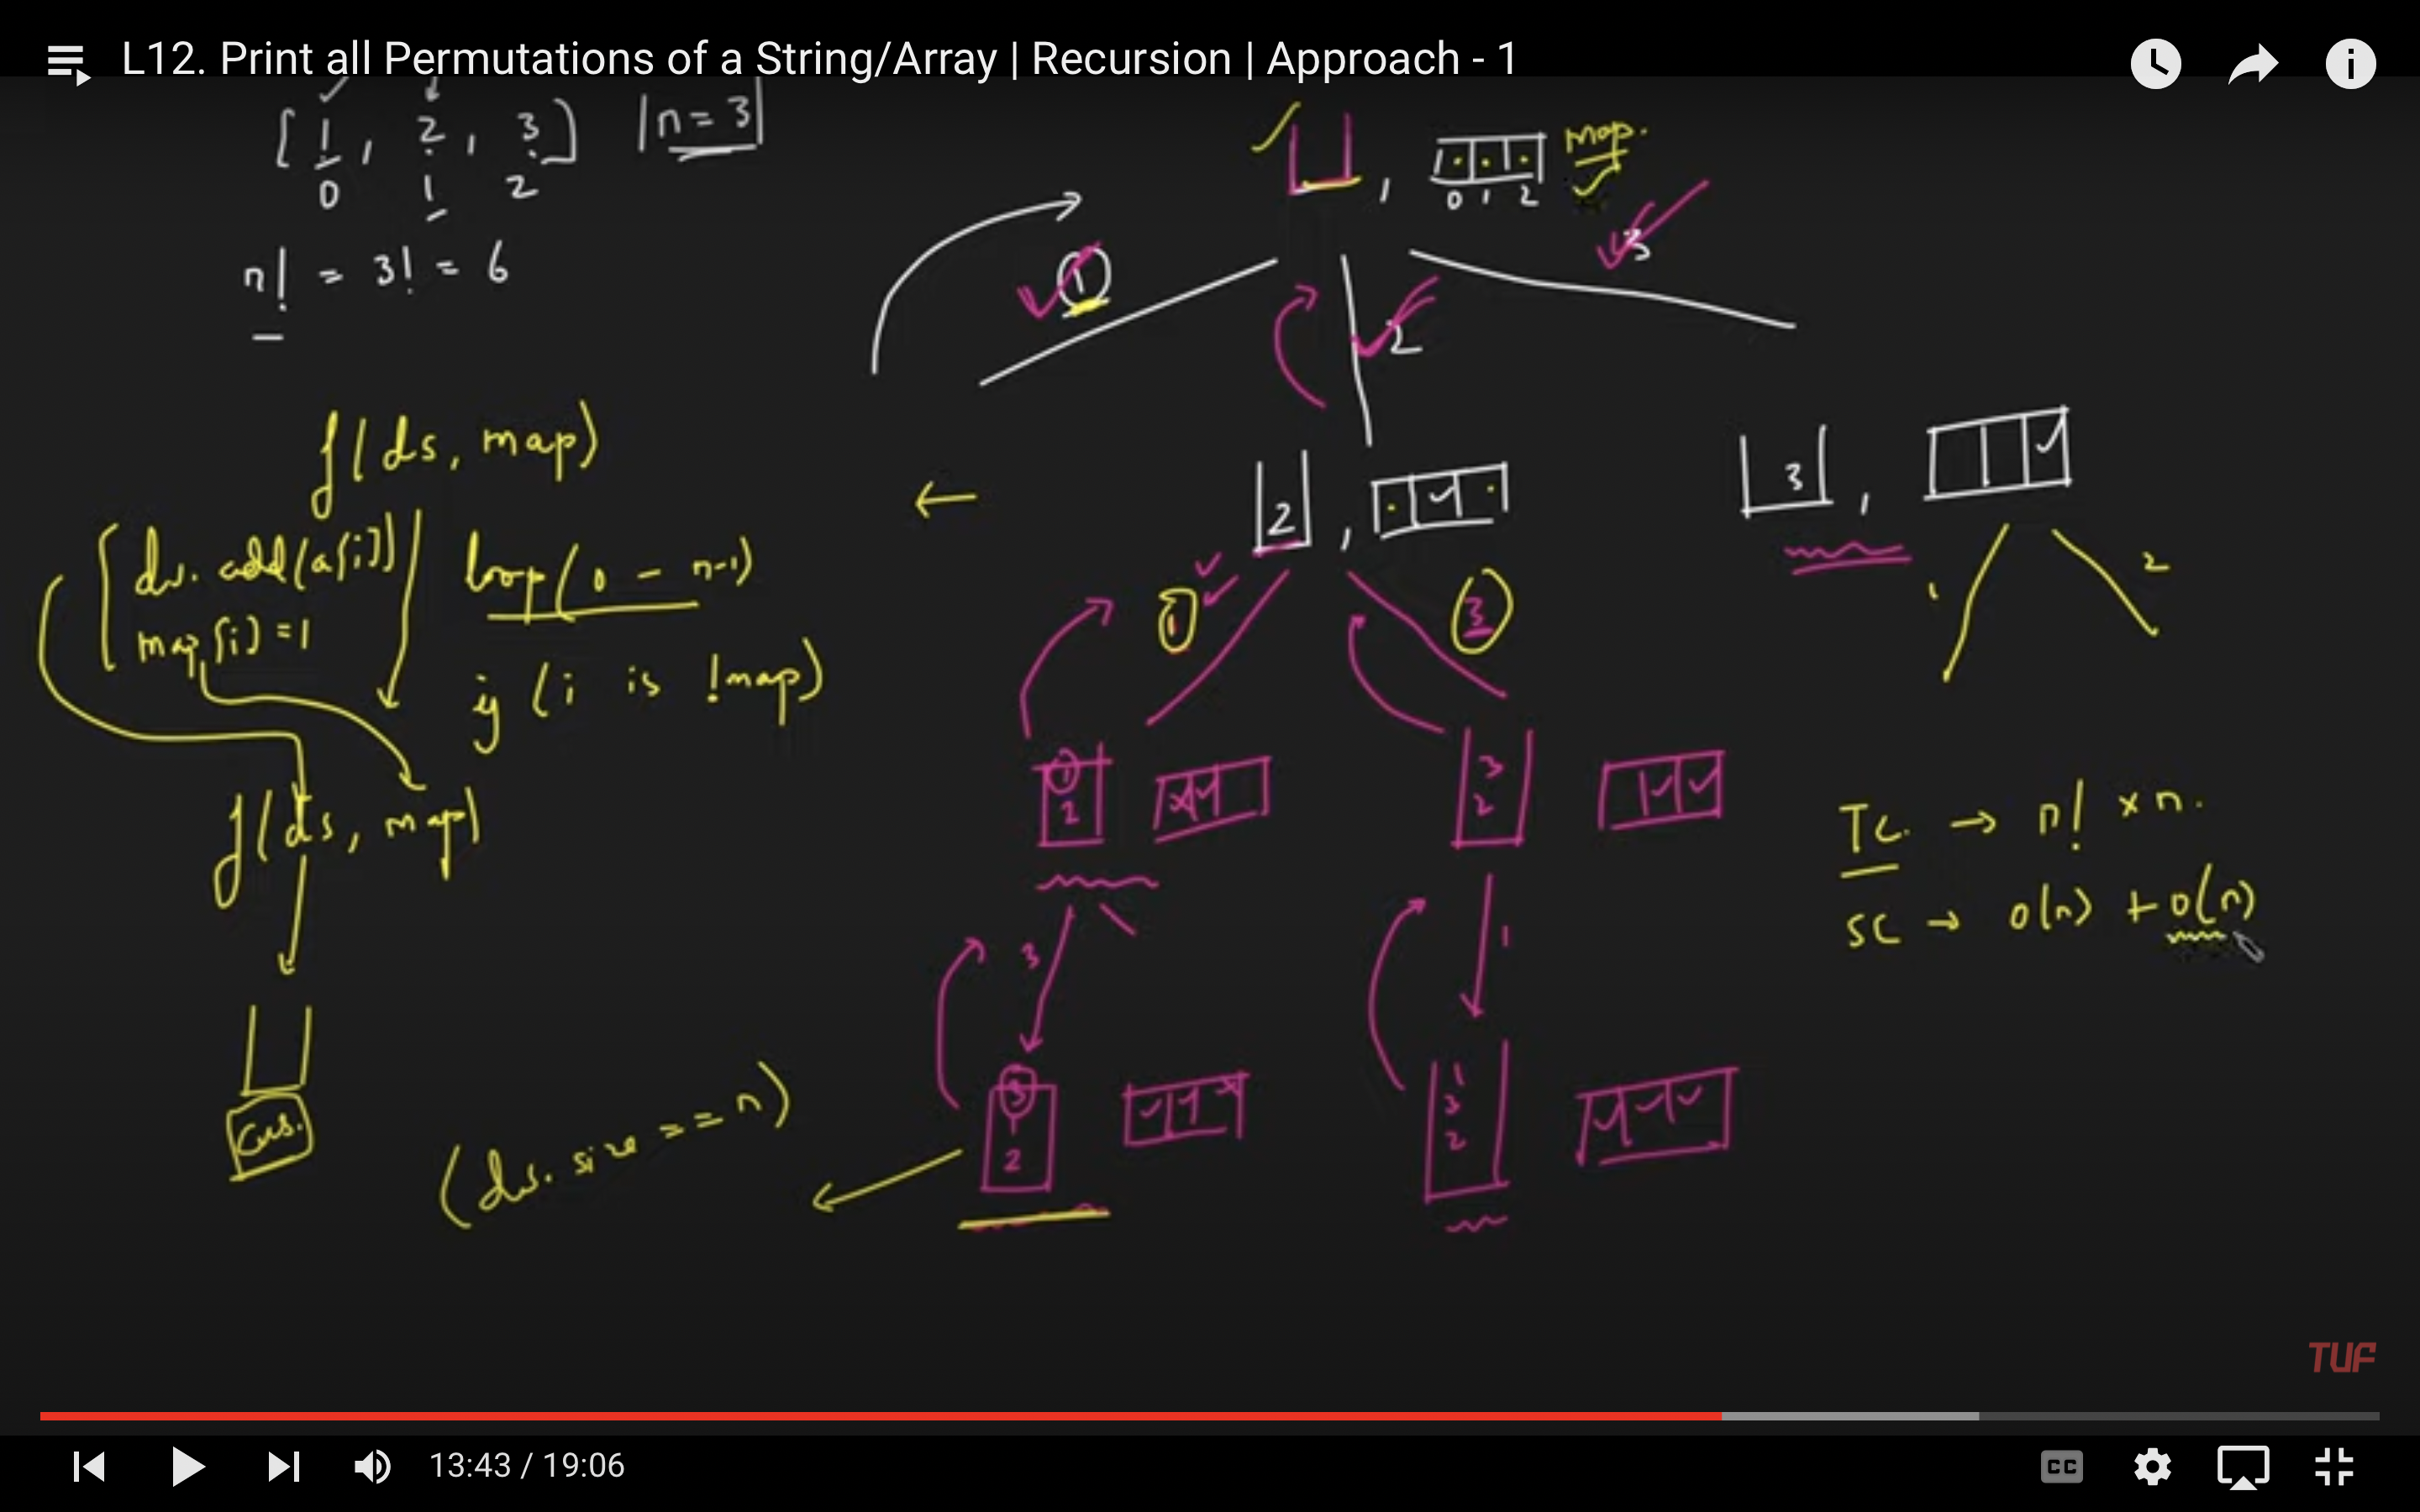 L12. Print all Permutations of a String/Array | Recursion | Approach - 1
[1, 2, 3] n = 3
0 1 2
n! = 3! = 6
, map.
0 1 2
1 2 3
f(ds, map)
ds.add(a[i])
map[i] = 1
loop(0 - n-1)
if (i is !map)
f(ds, map)
(ds.size == n)
2 ,
3 ,
1 3
1 2
1
2
3
2
3 1
3
1
2
1
3
2
TC → n! × n.
SC → O(n) + O(n)
TUF
13:43 / 19:06
CC